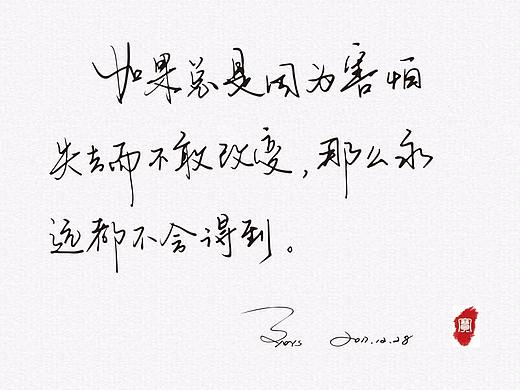 如果总是因为害怕
失去而不敢改变，那么永
远都不会得到。
2017.12.28